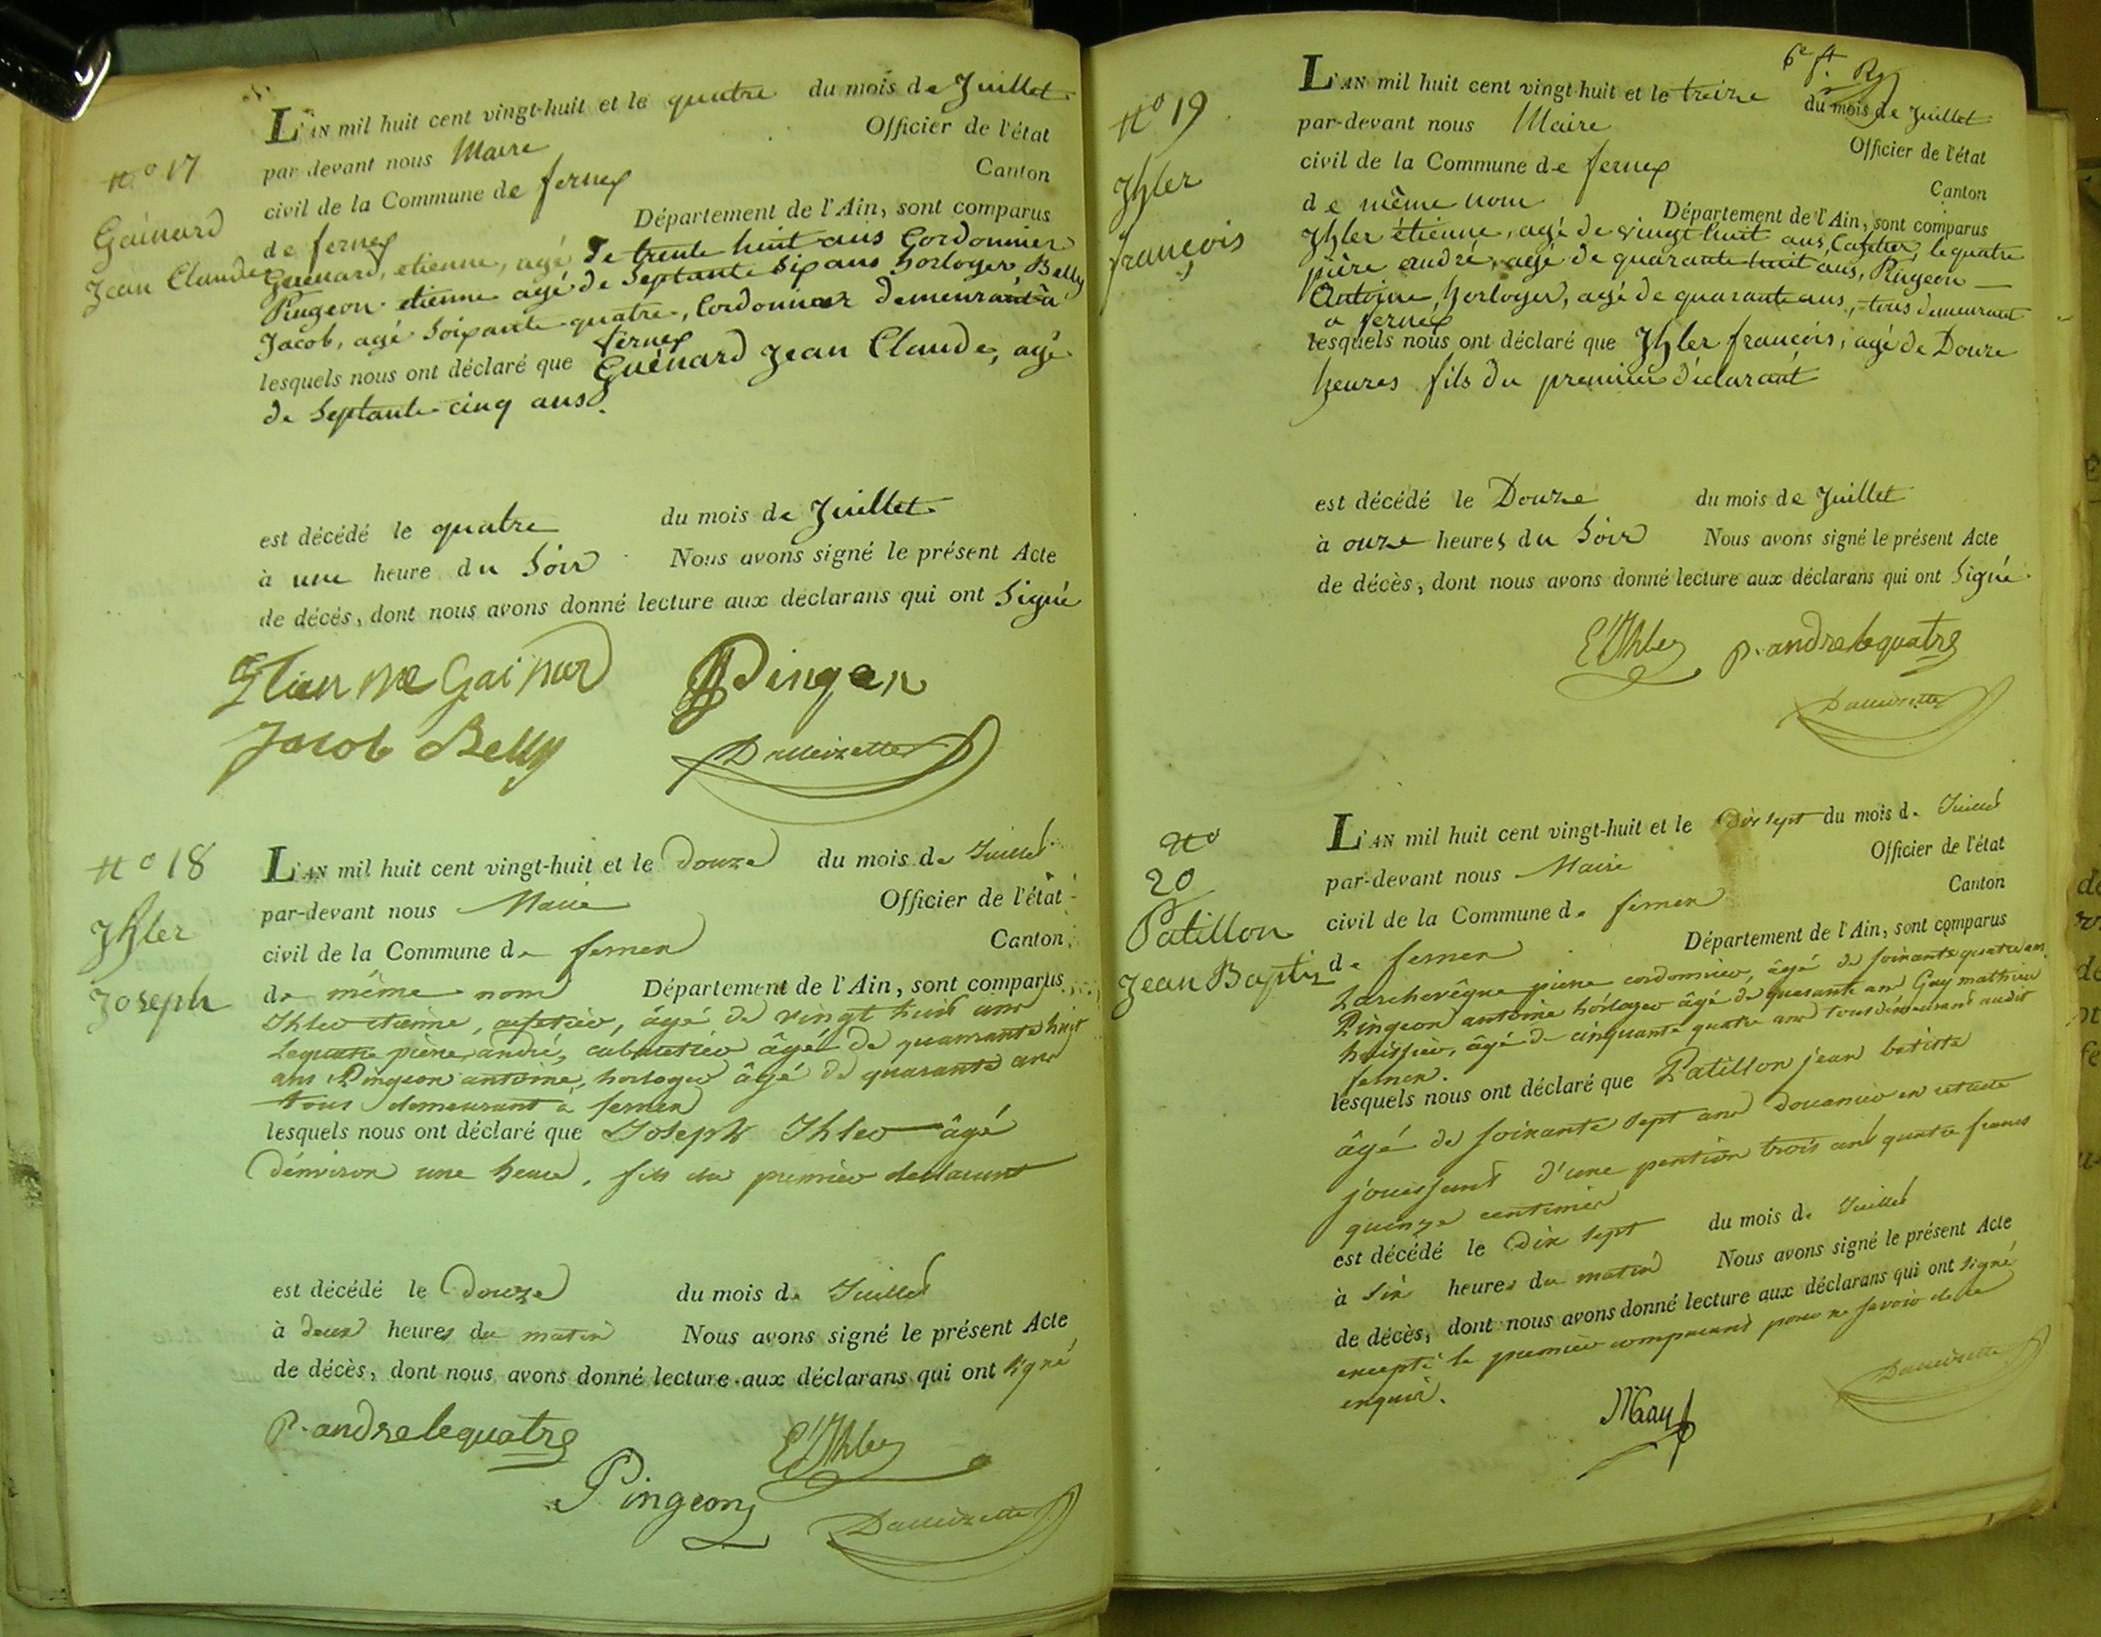 N.o 17
Gainard
Jean Claude
L'AN mil huit cent vingt-huit et le quatre du mois de Juillet
par-devant nous Maire Officier de l'état
civil de la Commune de fernex Canton
de fernex Département de l'Ain, sont comparus
Guénard, etienne, agé de trente huit ans Cordonnier
Pingeon etienne agé de Septante Six ans horloger, Belly
Jacob, agé Soixante quatre, Cordonnier demeurant à
fernex
lesquels nous ont déclaré que Guénard Jean Claude, agé
de Septante cinq ans.
est décédé le quatre du mois de Juillet
à une heure du Soir Nous avons signé le présent Acte
de décés, dont nous avons donné lecture aux déclarans qui ont Signé
Etienne Gainard Pingen
Jacob Belly Dalleizette
N.o 18
Ihler
Joseph
L'AN mil huit cent vingt-huit et le douze du mois de Juillet
par-devant nous Maire Officier de l'état
civil de la Commune de fernex Canton
de même nom Département de l'Ain, sont comparus
Ihler etienne, cafetier, âgé de vingt huit ans
Lequatre pierre andré, cabaretier âgé de quarante huit
ans Pingeon antoine, horloger âgé de quarante ans
tous demeurant à fernex
lesquels nous ont déclaré que Joseph Ihler âgé
d'environ une heure, fils du premier declarant
est décédé le Douze du mois de Juillet
à deux heures du matin Nous avons signé le présent Acte
de décès, dont nous avons donné lecture aux déclarans qui ont signé
P. andre lequatre E Ihler
Pingeon Dalleizette
N.o 19
Ihler
françois
L'AN mil huit cent vingt-huit et le treize du mois de Juillet
par-devant nous Maire Officier de l'état
civil de la Commune de fernex Canton
de même nom Département de l'Ain, sont comparus
Ihler étienne, agé de vingt huit ans, Cafetier, lequatre
pière andré, agé de quarante huit ans, Pingeon
Antoine, horloger, agé de quarante ans, tous demeurant
a fernex
lesquels nous ont déclaré que Ihler françois, agé de Douze
heures fils du premier déclarant
est décédé le Douze du mois de Juillet
à onze heures du Soir Nous avons signé le présent Acte
de décès, dont nous avons donné lecture aux déclarans qui ont Signé
E Ihler P. andre lequatre
Dalleizette
N.o
20
Patillon
Jean Baptis
L'AN mil huit cent vingt-huit et le dix sept du mois de Juillet
par-devant nous Maire Officier de l'état
civil de la Commune de fernex Canton
de fernex Département de l'Ain, sont comparus
Larchevêque pierre cordonnier, âgé de soixante quatre ans
Pingeon antoine horloger âgé de quarante ans Gay mathieu
huissier, âgé de cinquante quatre ans tous demeurant audit
fernex.
lesquels nous ont déclaré que Patillon jean batiste
âgé de soixante sept ans douanier en retraite
jouissant d'une pention trois cent quatre francs
quinze centimes
est décédé le dix sept du mois de Juillet
à six heures du matin Nous avons signé le présent Acte
de décès, dont nous avons donné lecture aux déclarans qui ont signé
excepté le premier comparant pour ne savoir de ce
enquis.
MGay Dalleizette